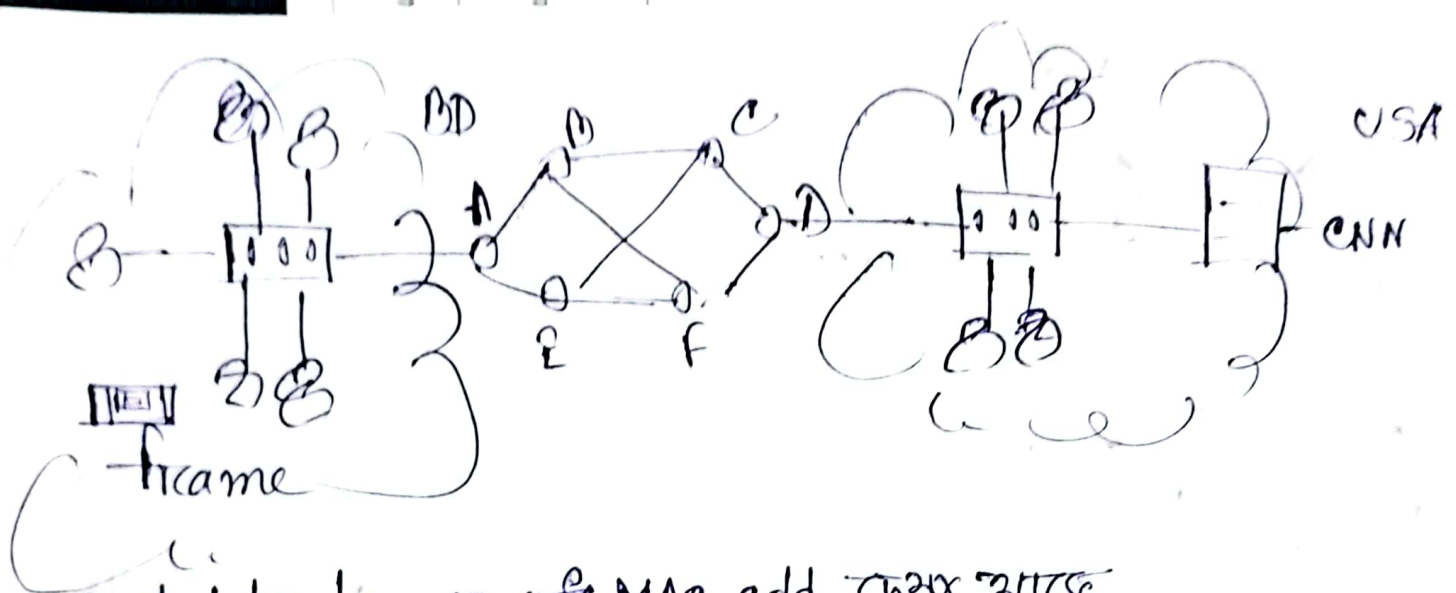 BD
USA
A B C D
CNN
E F
frame
MAC add